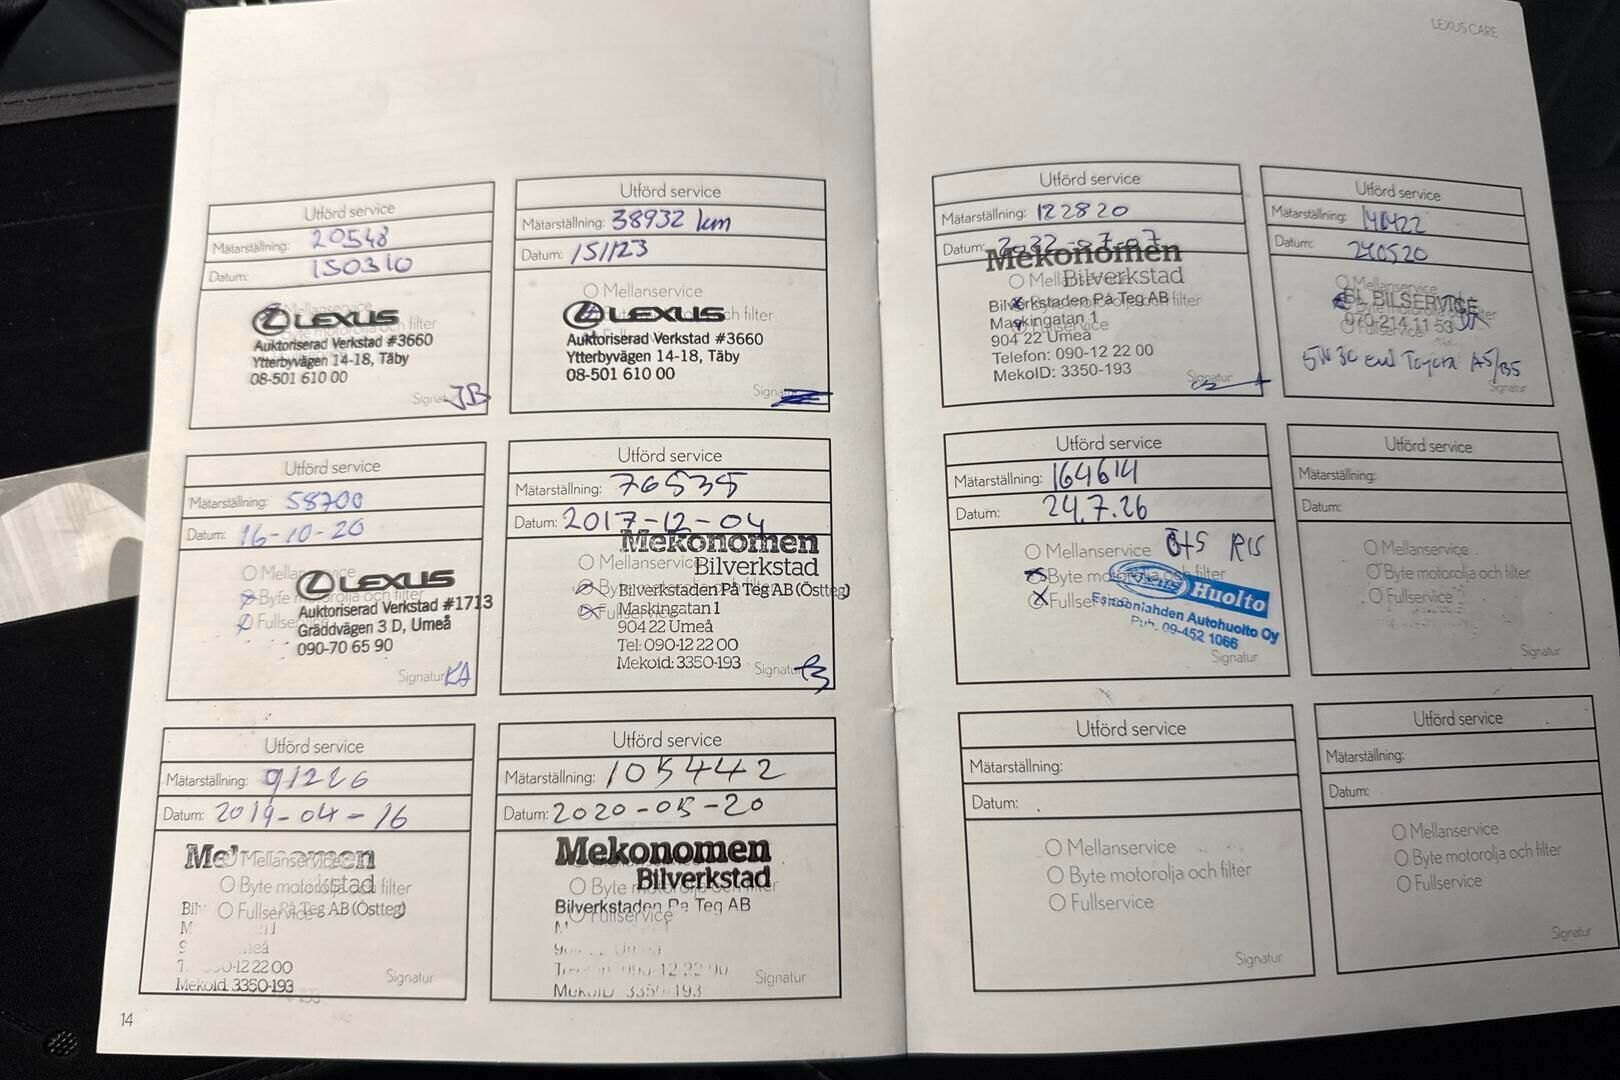 LEXUS CARE
Utförd service
Mätarställning: 20548
Datum: 150310
Mellanservice
Byte motorolja och filter
LEXUS
Auktoriserad Verkstad #3660
Ytterbyvägen 14-18, Täby
08-501 610 00
Signatur JB
Utförd service
Mätarställning: 38932 km
Datum: 151123
Mellanservice
Byte motorolja och filter
LEXUS
Auktoriserad Verkstad #3660
Ytterbyvägen 14-18, Täby
08-501 610 00
Signatur
Utförd service
Mätarställning: 58700
Datum: 16-10-20
Mellanservice
Byte motorolja och filter
Fullservice
LEXUS
Auktoriserad Verkstad #1713
Gräddvägen 3 D, Umeå
090-70 65 90
Signatur KA
Utförd service
Mätarställning: 76535
Datum: 2017-12-04
Mekonomen
Bilverkstad
Mellanservice
Byte motorolja och filter
Fullservice
Bilverkstaden På Teg AB (Östteg)
Maskingatan 1
904 22 Umeå
Tel: 090-12 22 00
Mekoid: 3350-193
Signatur
Utförd service
Mätarställning: 91226
Datum: 2019-04-16
Mekonomen
Mellanservice
Byte motorolja och filter
Fullservice
På Teg AB (Östteg)
Mekoid: 3350-193
Signatur
Utförd service
Mätarställning: 105442
Datum: 2020-05-20
Mekonomen
Bilverkstad
Byte motorolja och filter
Bilverkstaden På Teg AB
Fullservice
Signatur
14
Utförd service
Mätarställning: 122820
Datum: 2022-07-07
Mekonomen
Bilverkstad
Mellanservice
Bilverkstaden På Teg AB
Byte motorolja och filter
Maskingatan 1
Fullservice
904 22 Umeå
Telefon: 090-12 22 00
MekoID: 3350-193
Signatur
Utförd service
Mätarställning:
Datum: 240520
Mellanservice
BL BILSERVICE
Byte motorolja och filter
070-214 11 53
Fullservice
5W30 Toyota A5/B5
Signatur
Utförd service
Mätarställning: 164614
Datum: 24.7.26
Mellanservice
Byte motorolja och filter
Fullservice
Huolto
Espoonlahden Autohuolto Oy
Puh. 09-452 1066
Signatur
Utförd service
Mätarställning:
Datum:
Mellanservice
Byte motorolja och filter
Fullservice
Signatur
Utförd service
Mätarställning:
Datum:
Mellanservice
Byte motorolja och filter
Fullservice
Signatur
Utförd service
Mätarställning:
Datum:
Mellanservice
Byte motorolja och filter
Fullservice
Signatur